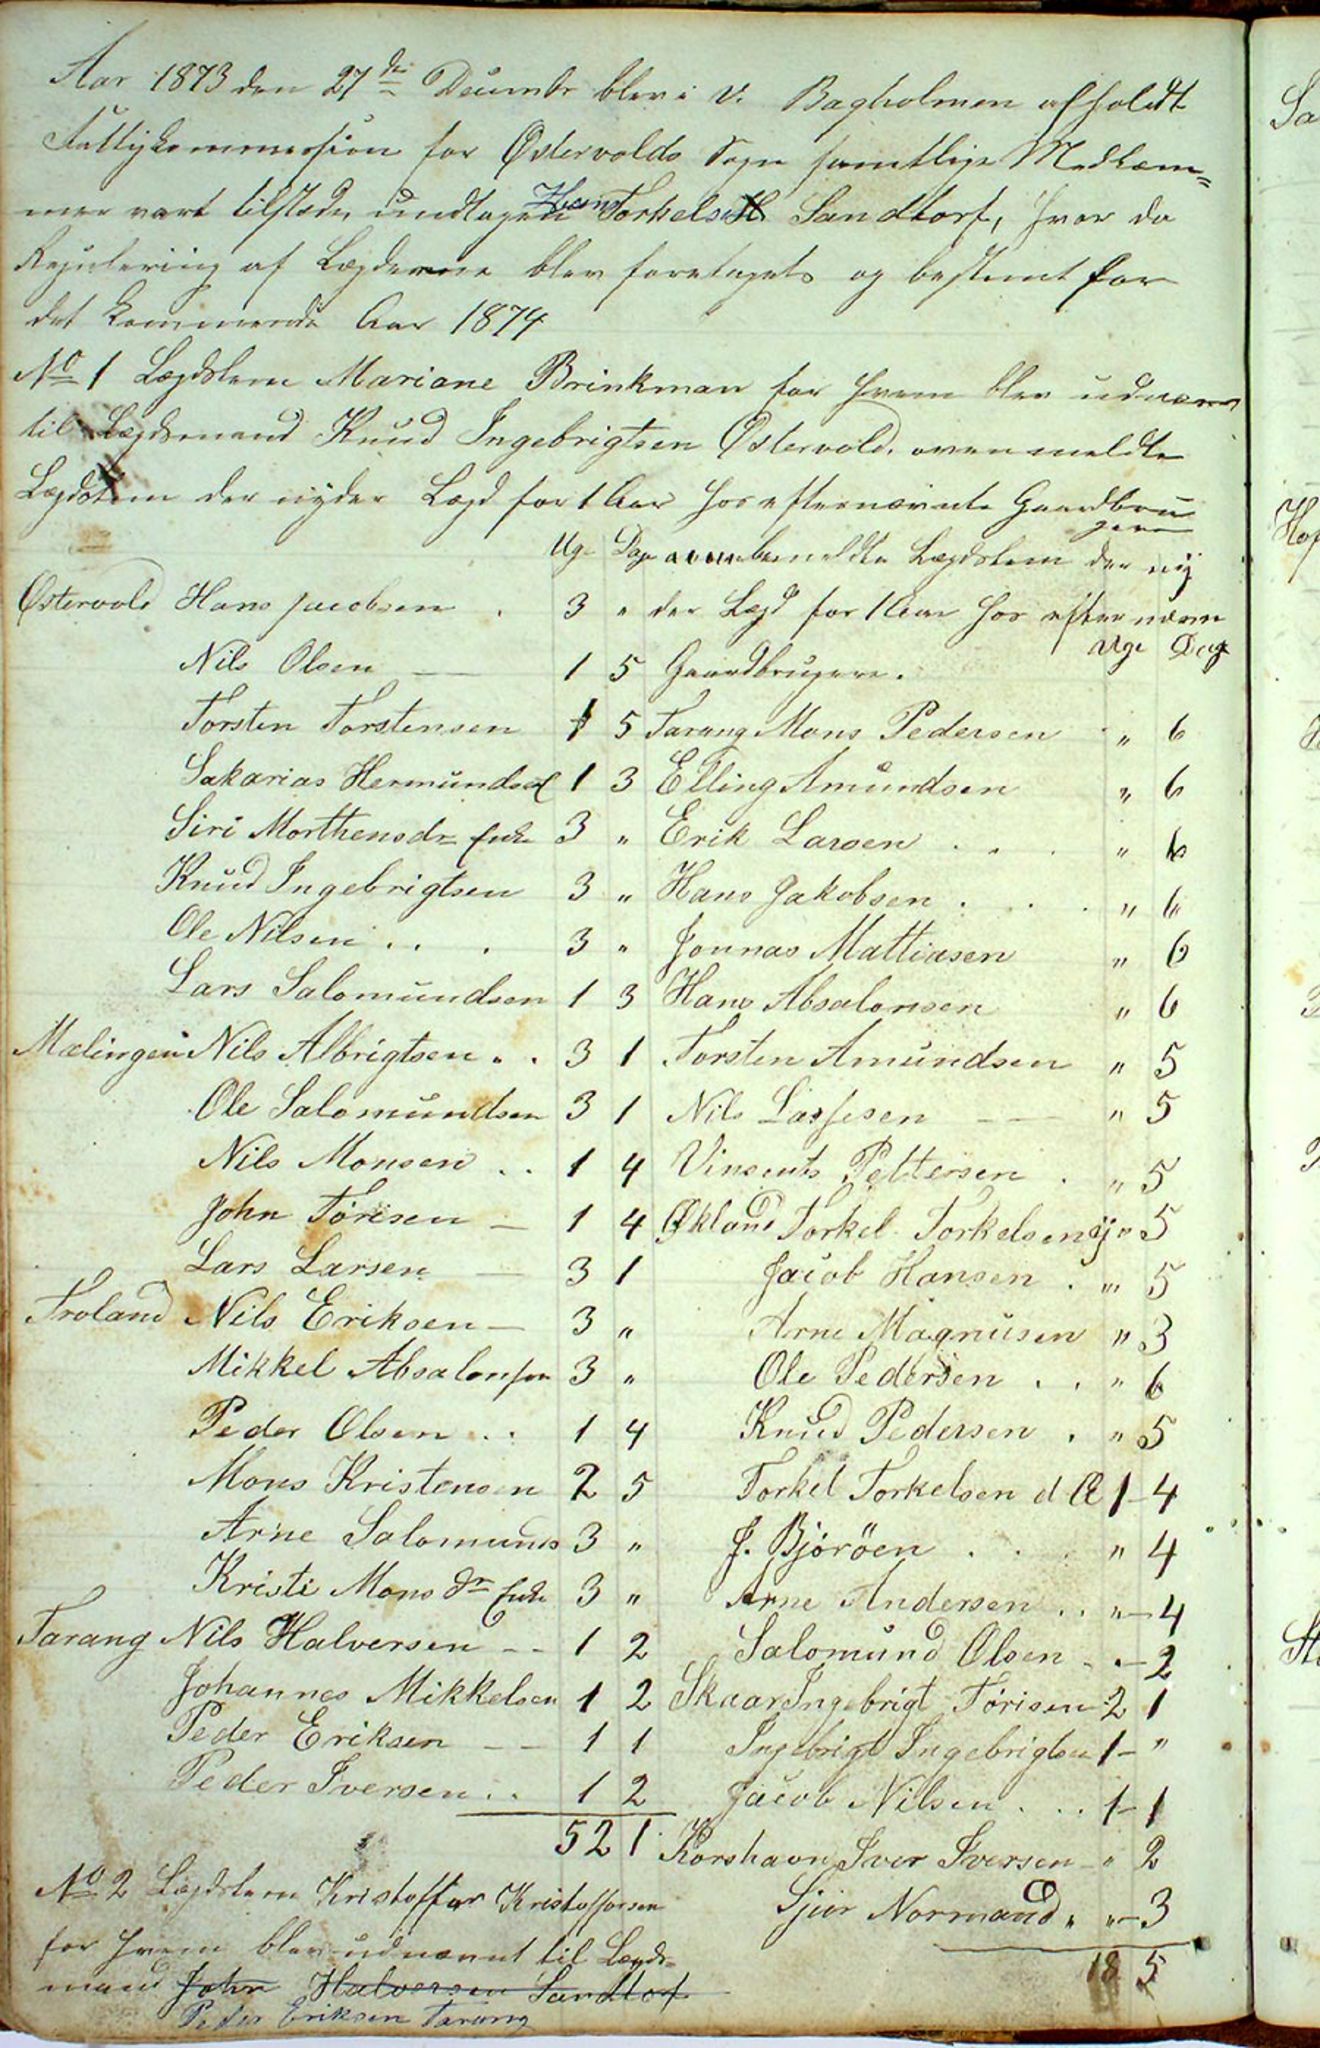 Aar 1873 den 27de Decembr blev i V. Bagholmen afholdt
Fattigkommission for Østervolds Sogn samtlige Medlem=
mer vart tilstæde undtagen Hans Torkelsen Sandtorf, hvor da
Regulering af Lægderne blev foretaget og bestemt for
det kommende Aar 1874
No 1 Lægdslem Mariane Brinkman for hvem blev udnævnt
til Lægdsmand Knud Ingebrigtsen Østervold. ovenmeldte
Lægdslem der nyder Lægd for 1 Aar hos efternævnte Gaardbru
gere
Uge Dage
Østervold Hans Jacobsen . 3 "
Nils Olsen — 1 5
Torsten Torstensen 1 5
Sakarias Hermundsen 1 3
Siri Morthensdr Enke 3 "
Knud Ingebrigtsen 3 "
Ole Nilsen . . . 3 "
Lars Salomundsen 1 3
Mælingen Nils Albrigtsen . . 3 1
Ole Salomundsen 3 1
Nils Monsen . . 1 4
John Torisen — 1 4
Lars Larsen — 3 1
Troland Nils Eriksen — 3 "
Mikkel Absalonsen 3 "
Peder Olsen . . 1 4
Mons Kristensen 2 5
Arne Salomunds 3 "
Kristi Mons dr Enke 3 "
Tarang Nils Halversen - - 1 2
Johannes Mikkelsen 1 2
Peder Eriksen — — 1 1
Peder Iversen . . 1 2
52 1
No 2 Lægdslem Kristoffer Kristoffersen
for hvem blev udnævnt til Lægds=
mand John Halversen Sandtorf
Peder Eriksen Tarang
ovenbemeldte Lægdslem der ny
der Lægd for 1 Aar hos efternævn
Uge Dage
Gaardbrugere.
Tarang Mons Pedersen " 6
Elling Amundsen " 6
Erik Larsen . . . " 6
Hans Jakobsen . . . " 6
Jonnas Mattiasen " 6
Hans Absalonsen " 6
Torsten Amundsen " 5
Nils Lassesen — — " 5
Vinsents Pettersen . " 5
Økland Torkel Torkelsen yj " 5
Jacob Hansen . " 5
Arne Magnusen " 3
Ole Pedersen . . " 6
Knud Pedersen . " 5
Torkel Torkelsen d Æ 1 - 4
J. Bjørøen . . . " 4
Arne Andersen . . " - 4
Salomund Olsen - " - 2
Skaar Ingebrigt Torisen 2 1
Ingebrigt Ingebrigtsen 1 - "
Jacob Nilsen . . . 1 - 1
Korshavn Iver Iversen - " 2
Sjur Normand " " - 3
18 5